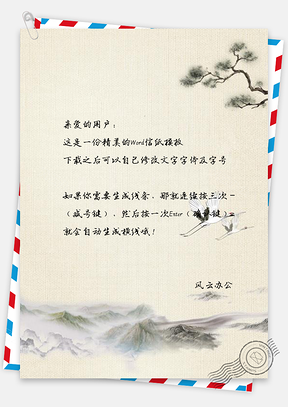 亲爱的用户：
这是一份精美的Word信纸模板
下载之后可以自己修改文字字体及字号
如果你需要生成线条，那就连续按三次
（减号键），然后按一次Enter（确认键），
就会自动生成横线哦！
风云办公